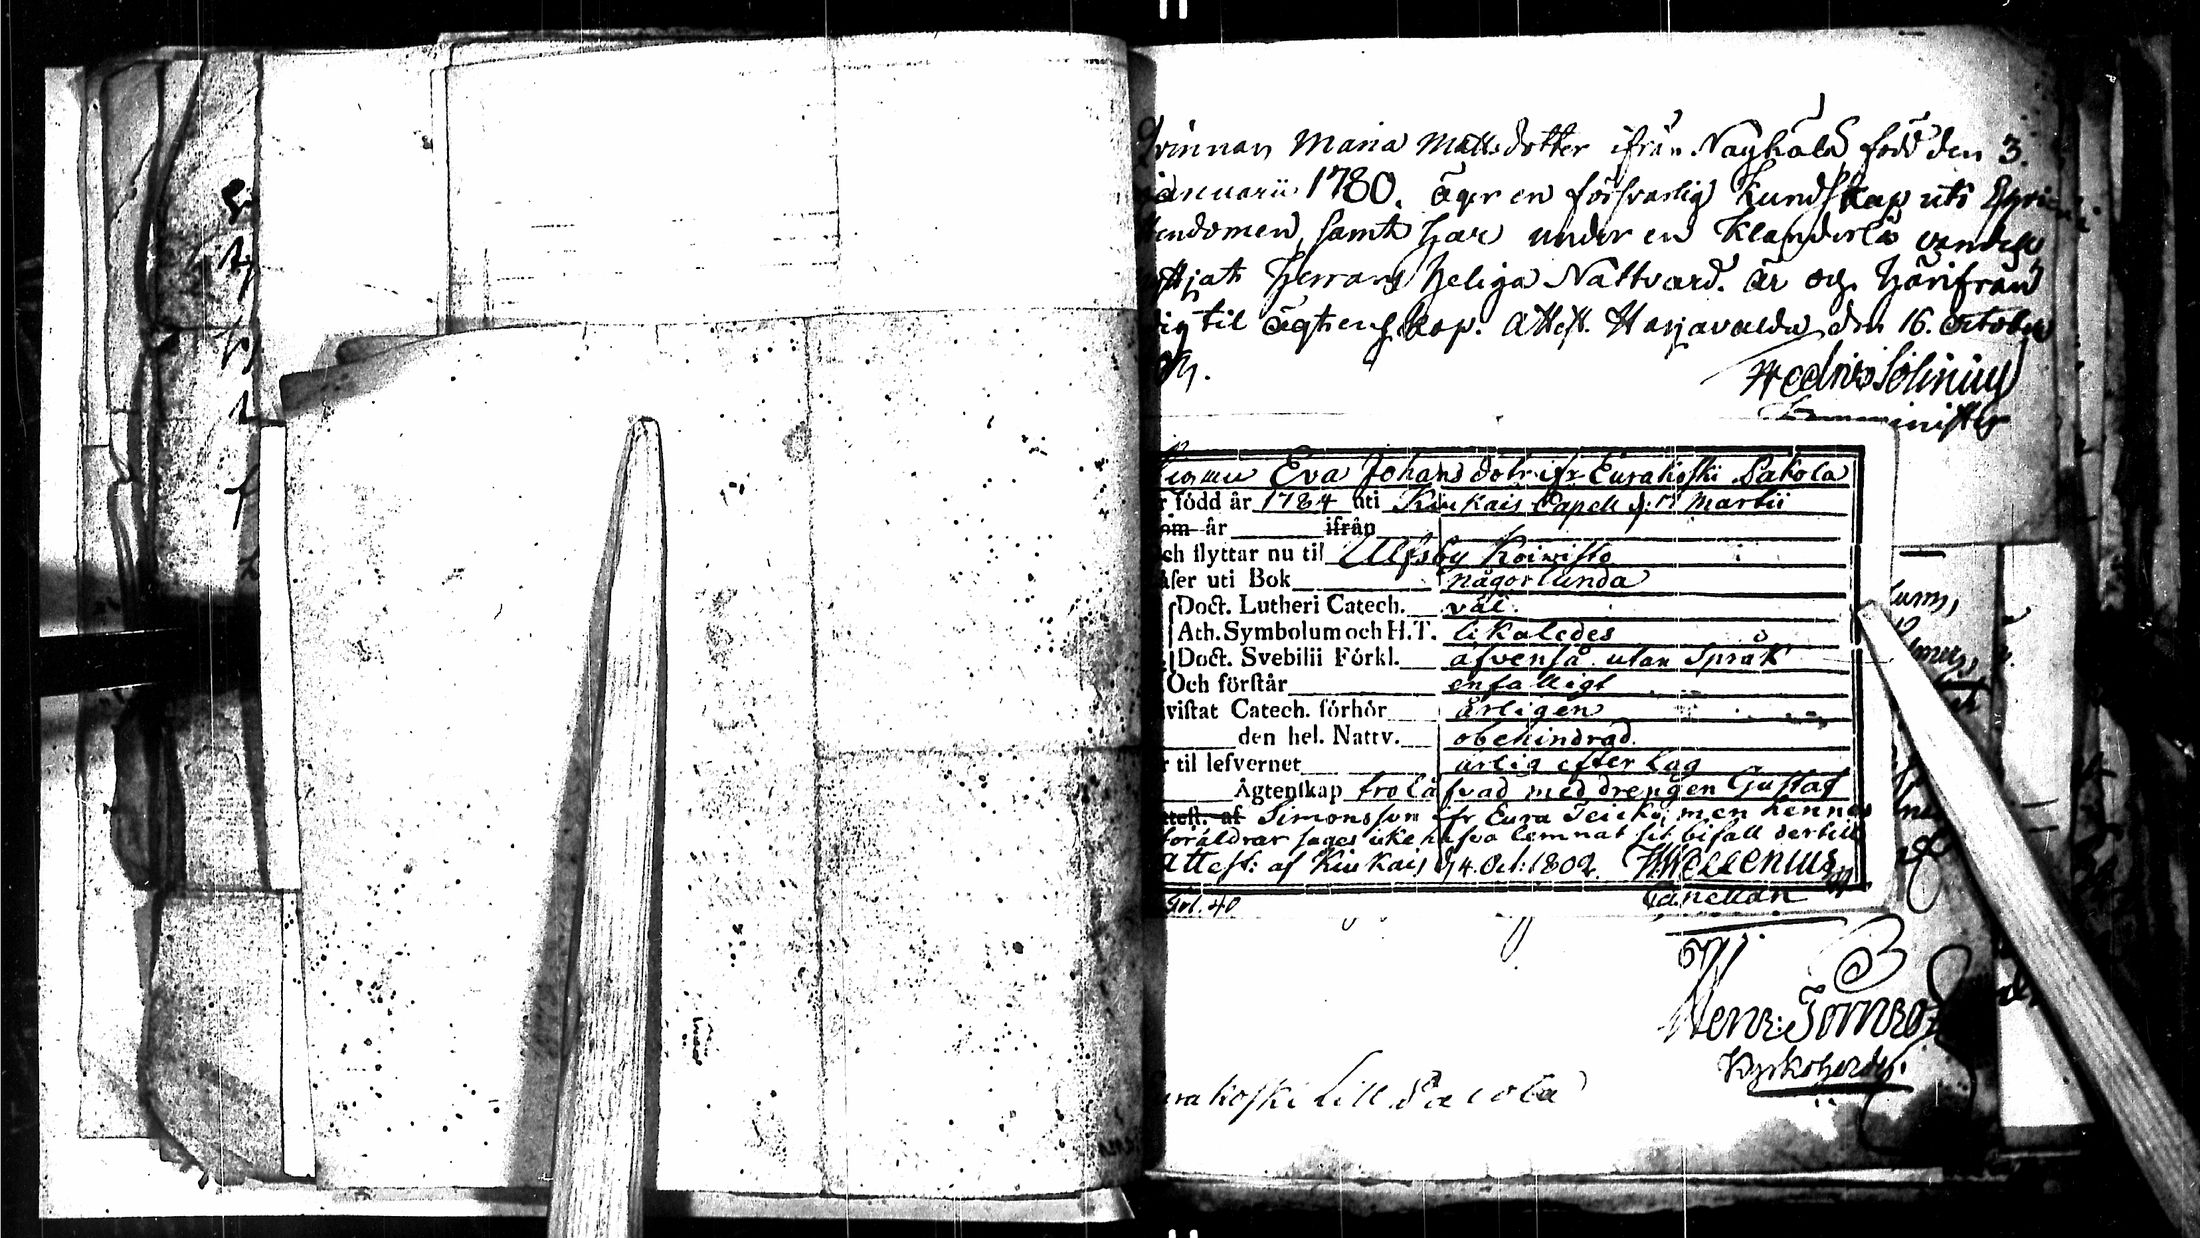 Qvinnan Maria Mattsdotter ifrån Nayhälä född den 3.
Januarii 1780. äger en försvarlig kundskap uti Christ
endomen, samt har under en klanderlös vandel
tjat Herrans heliga Nattvard. är och härifrån
dig til ägtenskap. Attest. Harjavalda den 16. October
Fredric Solinius
Comminister
Eva Johansdotr ifr Eurakoski Sakola
r född år 1784 uti Kiukais Capell d: 17 Martii
om år ifrån
ch flyttar nu til Ulfsby Koiwisto
äser uti Bok någorlunda
Doct. Lutheri Catech. väl.
Ath. Symbolum och H.T. likaledes
Doct. Svebilii Förkl. äfvenså utan Språk
Och förstår enfalligt
vistat Catech. förhör årligen
den hel. Nattv. obehindrad.
r til lefvernet ärlig efter Lag
Ägtenskap trolåfvad med drengen Gustaf
ttest. af Simonsson ifr Eura men hennes
föräldrar säges icke hafva lemnat sit bifall dertill
Attest: af Kiukais d 4. Oct: 1802.
Capellan
40
Henr: Torneo
Kyrkoherde.
urakoski Lill Sacola